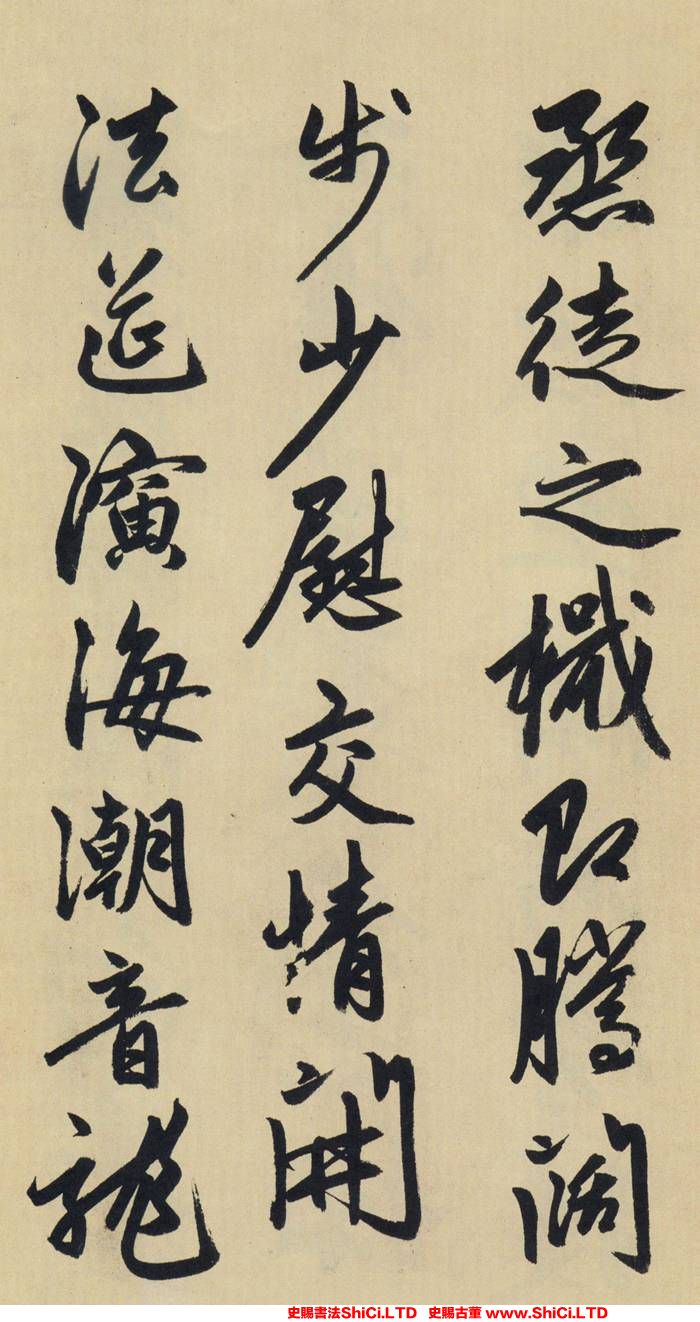 烝徒之檝即騰闊
步少慰交情開
法筵演海潮音龍
史賜書法ShiCi.LTD 史賜古董 www.ShiCi.LTD